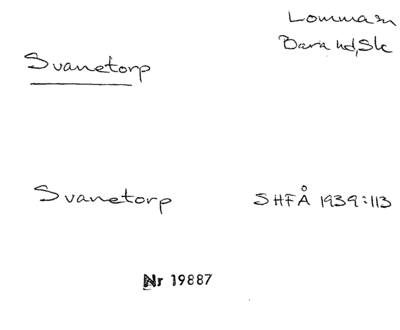 Lomma sn
Bara hd, Sk
Svanetorp
Svanetorp SHFÅ 1939:113
Nr 19887